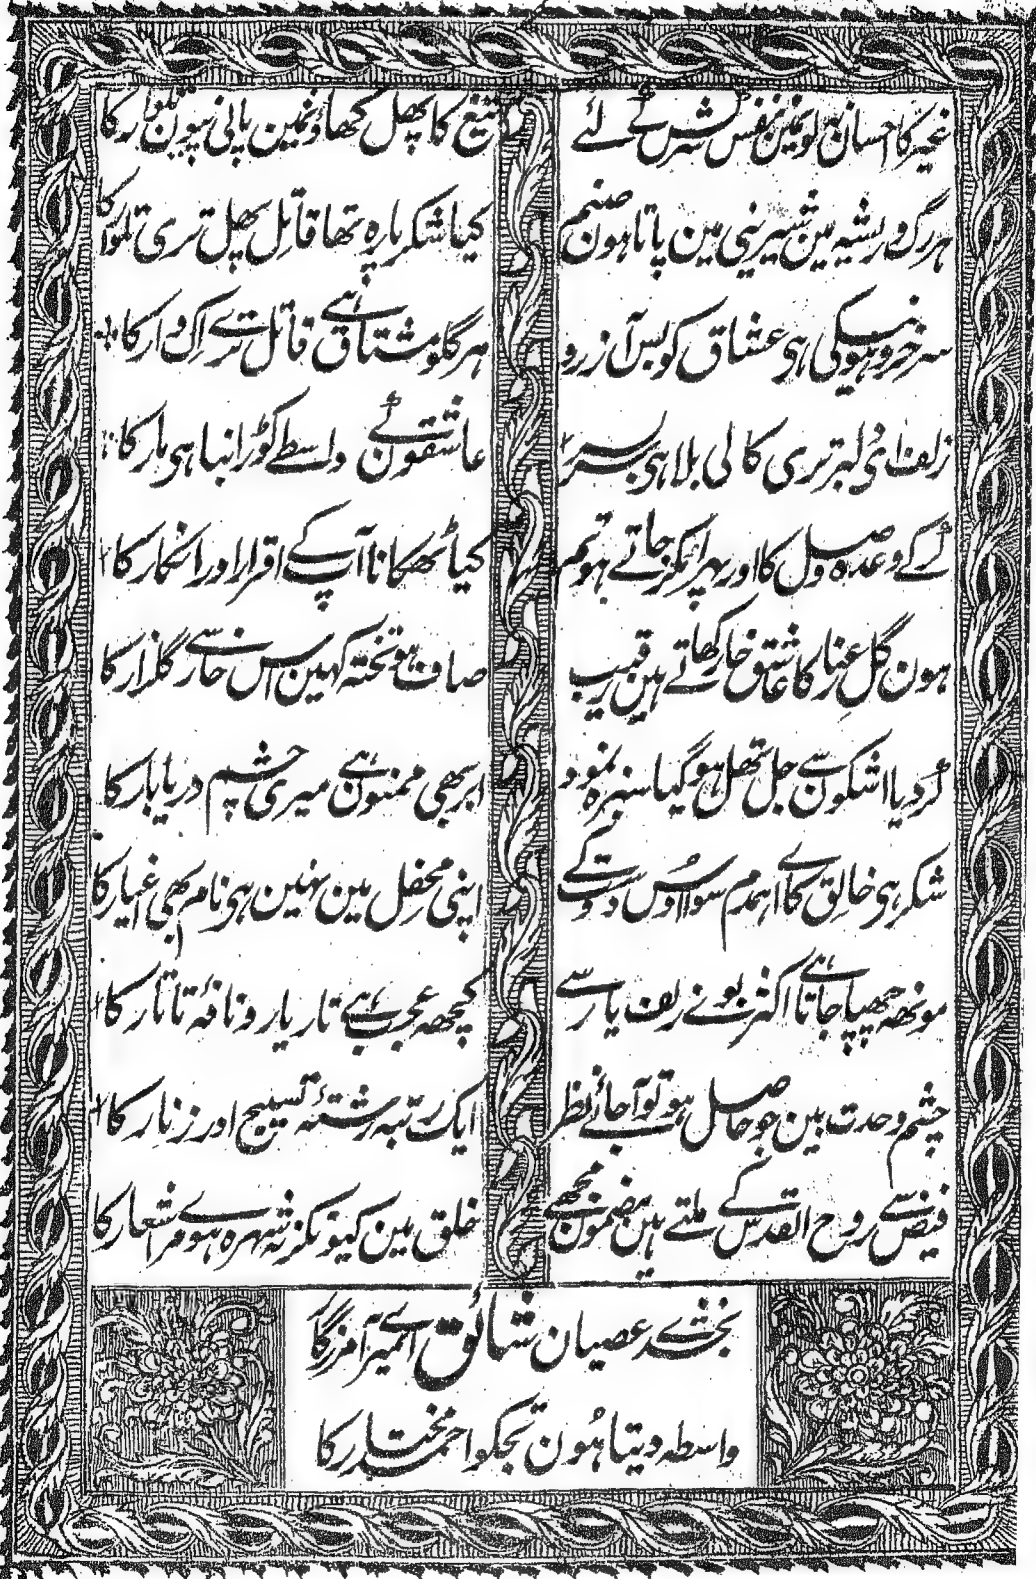 غیر کا احسان نہ لونمین نفس سرکش کے لئے تیغ کا پھل کھاؤنمین پانی پیون تلوار کا
ہر رگ و ریشہ مین شیرینی مین پاتا ہون صنم کیا شکر پارہ تھا قاتل پھل تری تلوار کا
سرخرو ہونیکی ہی عشاق کو بس آرزو ہر گلو مشتاق ہے قاتل ترے اک وار کا
زلف ای دلبر تری کالی بلا ہی سربسر عاشقونکے واسطے کوڑرانبا ہی مار کا
کرکے وعدہ وصل کا اور پہر مکر جاتے ہو تم کیا ٹھکانا آپ کے اقرار اور انکار کا
ہون گل عنار کا عاشق خار کھاتے ہین رقیب صاف ہو تختہ کہین اس خار سے گلزار کا
کردیا اشکون سے جل تھل ہو گیا سبزہ نمود ابر بھی ممنون ہے میری چشم دریا بار کا
شکر ہی خالق کا اے ہمدم سوا اوس دوست کے اپنی محفل مین نہین ہی نام بھی اغیار کا
مونھہ چھپا جاتا ہے اکثر بوئے زلف یار سے کچھہ عجب ہے تار یار و نافۂ تاتار کا
چشم وحدت بین جو حاصل ہو تو آجائے نظر ایک رتبہ رشتۂ تسبیح اور زنار کا
فیض سے روح القدس کے ملتے ہین مضمون مجھے خلق مین کیونکر نہ شہرہ ہو مرے اشعار کا
بخشدے عصیان شائق اے میرے آمرزگار
واسطہ دیتا ہون تجکو احمد مختار کا